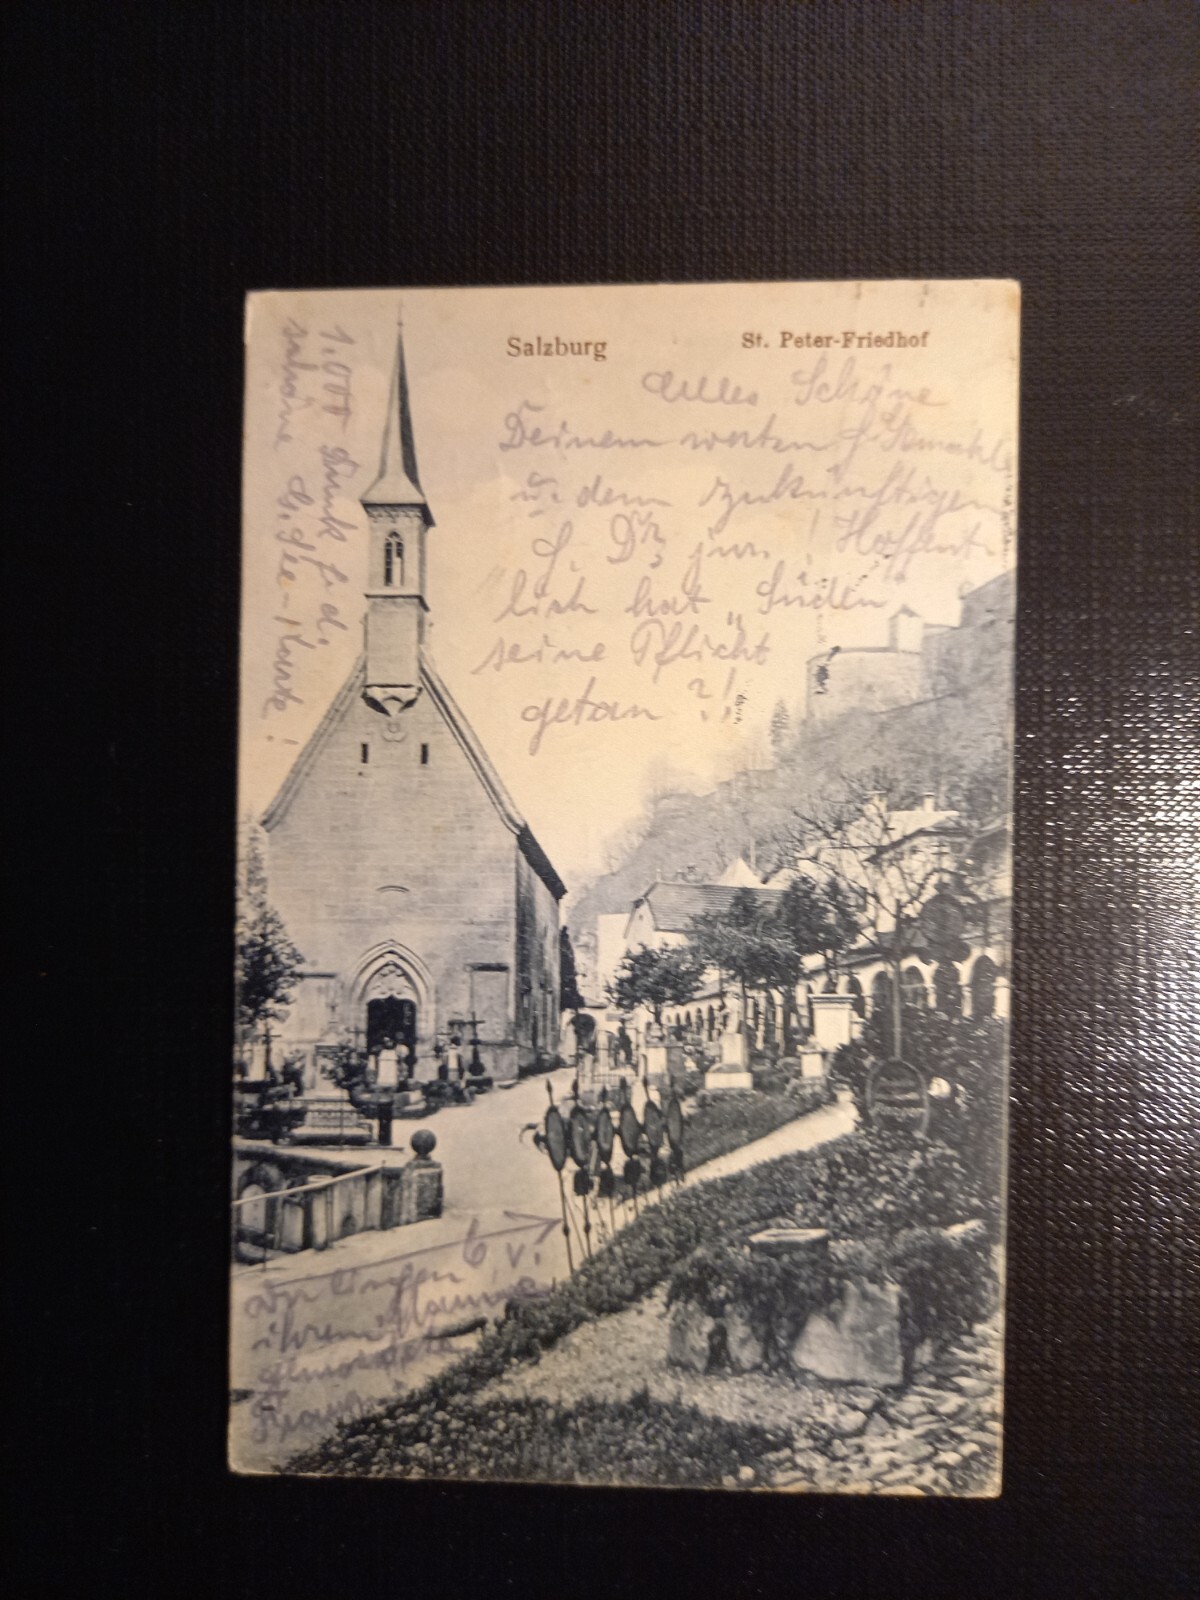 Salzburg
St. Peter-Friedhof
Alles Schöne
Deinem werten H.
u. dem zukünftigen
H. Dr. jur.! Hoffent-
lich hat „Süden"
seine Pflicht
getan?!
1.000 Dank f. d.
schöne Karte!
6 v.
ihrem Mann